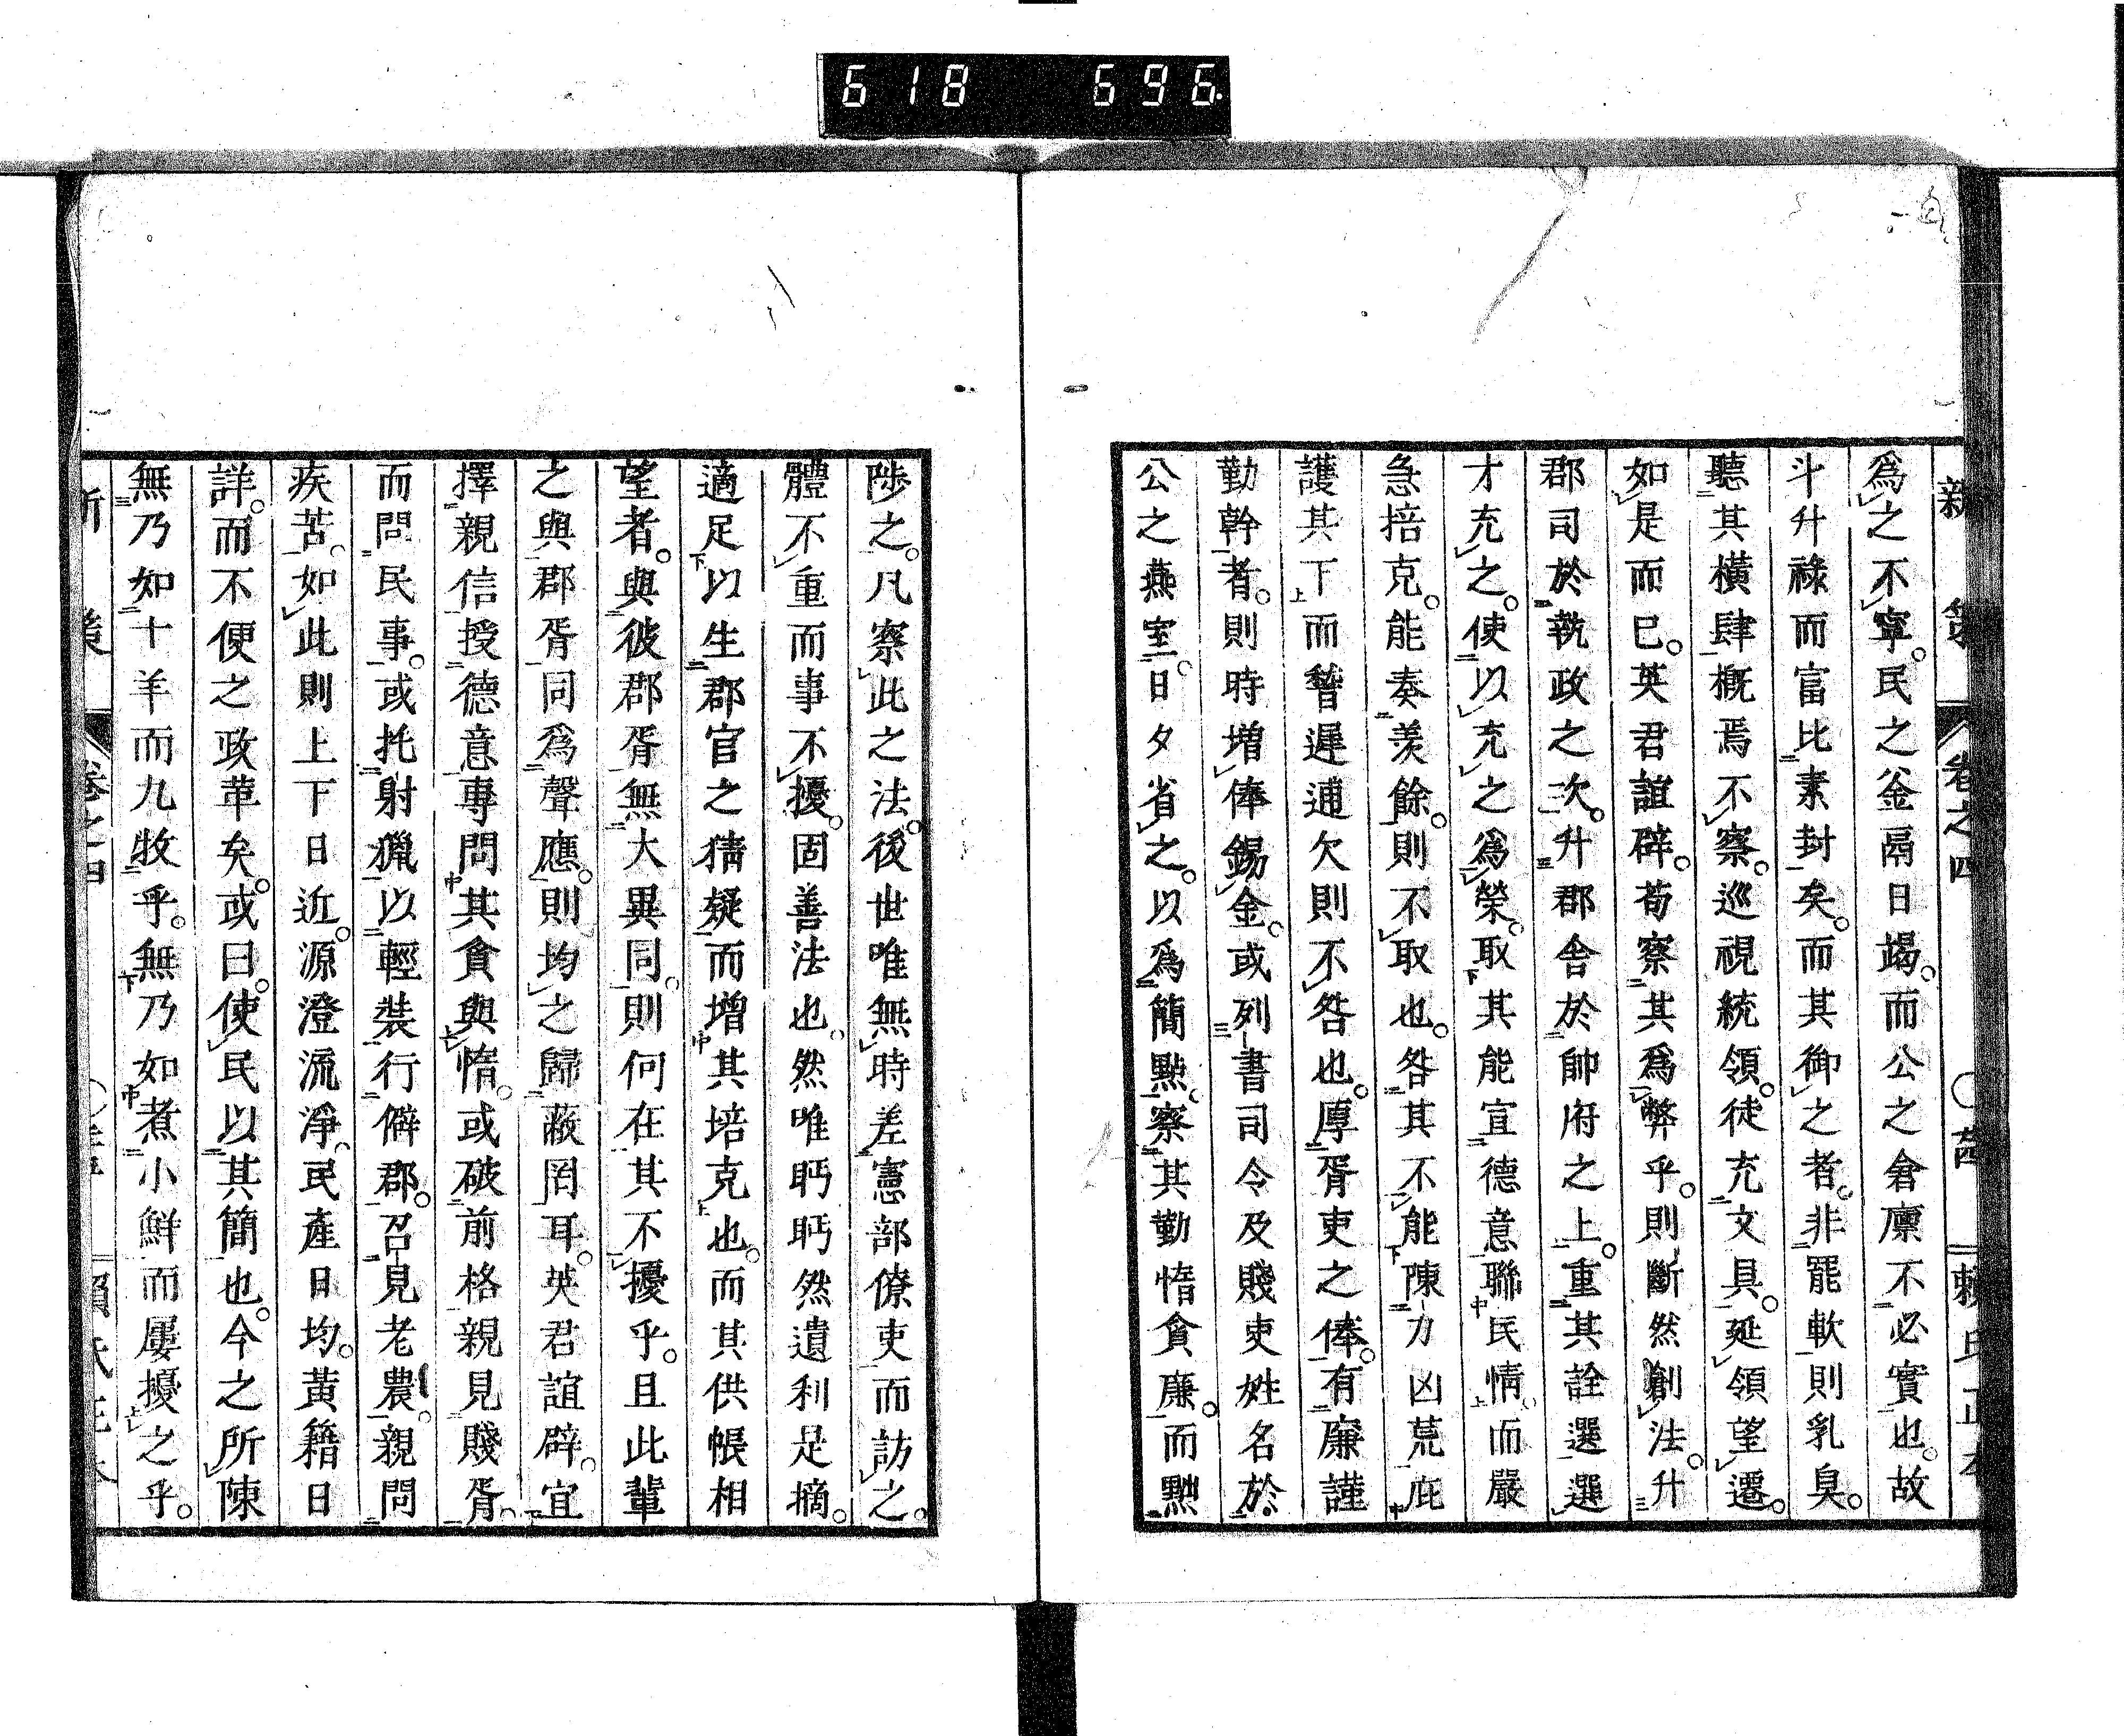 618 696
新策 卷之四 ○ 賴氏正本
爲之不寧。民之釡鬲日竭。而公之倉廩不必實也。故
斗升祿而富比素封矣。而其御之者。非罷軟則乳臭。
聽其橫肆概焉不察。巡視統領。徒充文具。延領望遷。
如是而已。英君誼辟。苟察其爲弊乎。則斷然創法。升
郡司於執政之次。升郡舍於帥府之上。重其詮選選
才充之。使以充之爲榮。取其能宣德意聯民情。而嚴
急掊克。能奏羨餘。則不取也。咎其不能陳力凶荒庇
護其下而暬遲逋欠則不咎也。厚胥吏之俸。有廉謹
勤幹者。則時增俸錫金。或列書司令及賤吏姓名於
公之燕室。日夕省之。以爲簡點。察其勤惰貪廉。而黜
陟之。凡察此之法。後世唯無時差憲部僚吏而訪之。
體不重而事不擾。固善法也。然唯眄眄然遺利是摘。
適足以生郡官之猜疑而增其培克也。而其供帳相
望者。與彼郡胥無大異同。則何在其不擾乎。且此輩
之與郡胥同爲聲應。則均之歸蔽罔耳。英君誼辟。宜
擇親信授德意專問其貪與惰。或破前格親見賤胥。
而問民事。或托射獵以輕裝行僻郡。召見老農。親問
疾苦。如此則上下日近。源澄流淨。民產日均。黃籍日
詳。而不便之政革矣。或曰。使民以其簡也。今之所陳
無乃如十羊而九牧乎。無乃如煮小鮮而屢擾之乎。
新策 卷之四 ○ 賴氏正本